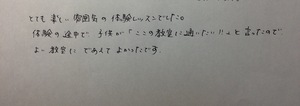 とても楽しい雰囲気の体験レッスンでした。
体験の途中で子供が「ここの教室に通いたい!!」と言ったので
よい教室にであえてよかったです